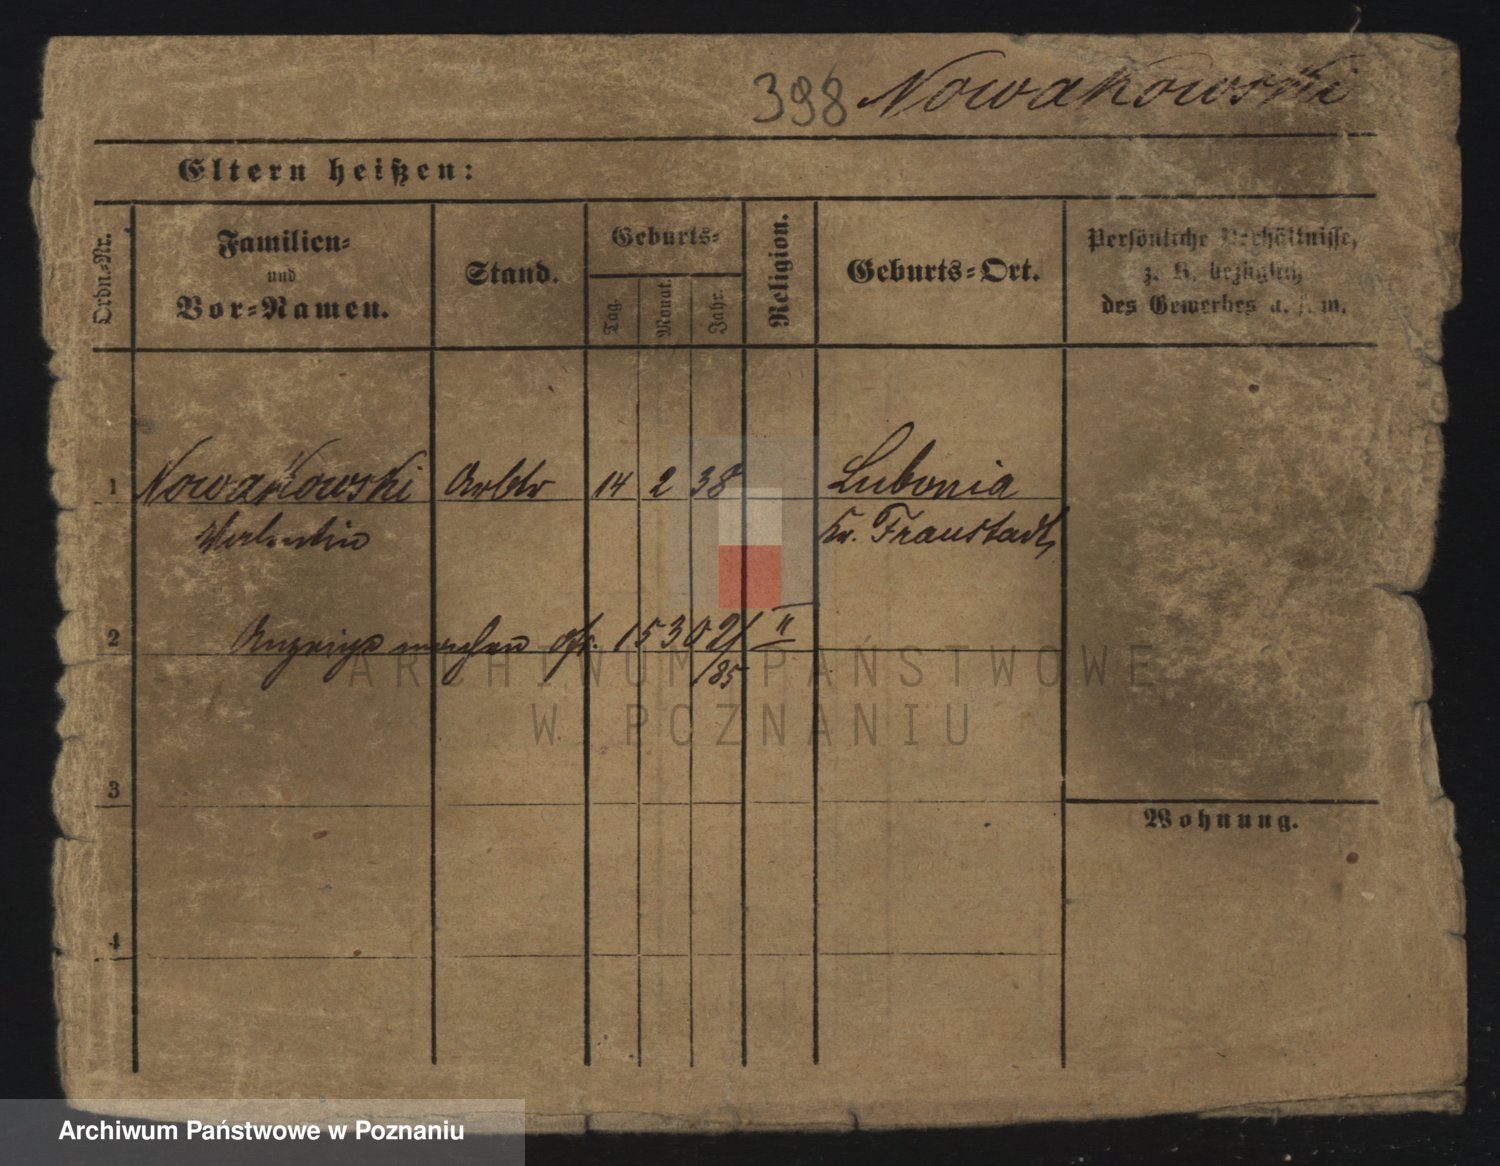 398 Nowakowski
Eltern heißen:
Ordn.-Nr.
Familien-
und
Vor-Namen.
Stand.
Geburts-
Tag.
Monat.
Jahr.
Religion.
Geburts-Ort.
Persönliche Verhältnisse,
z. B. bezüglich
des Gewerbes u. s. w.
1 Nowakowski Arbtr 14 2 38 Lubonia
Valentin Kr. Fraustadt
2 15302/ II
/85
3
Wohnung.
4
ARCHIWUM PAŃSTWOWE
W POZNANIU
Archiwum Państwowe w Poznaniu